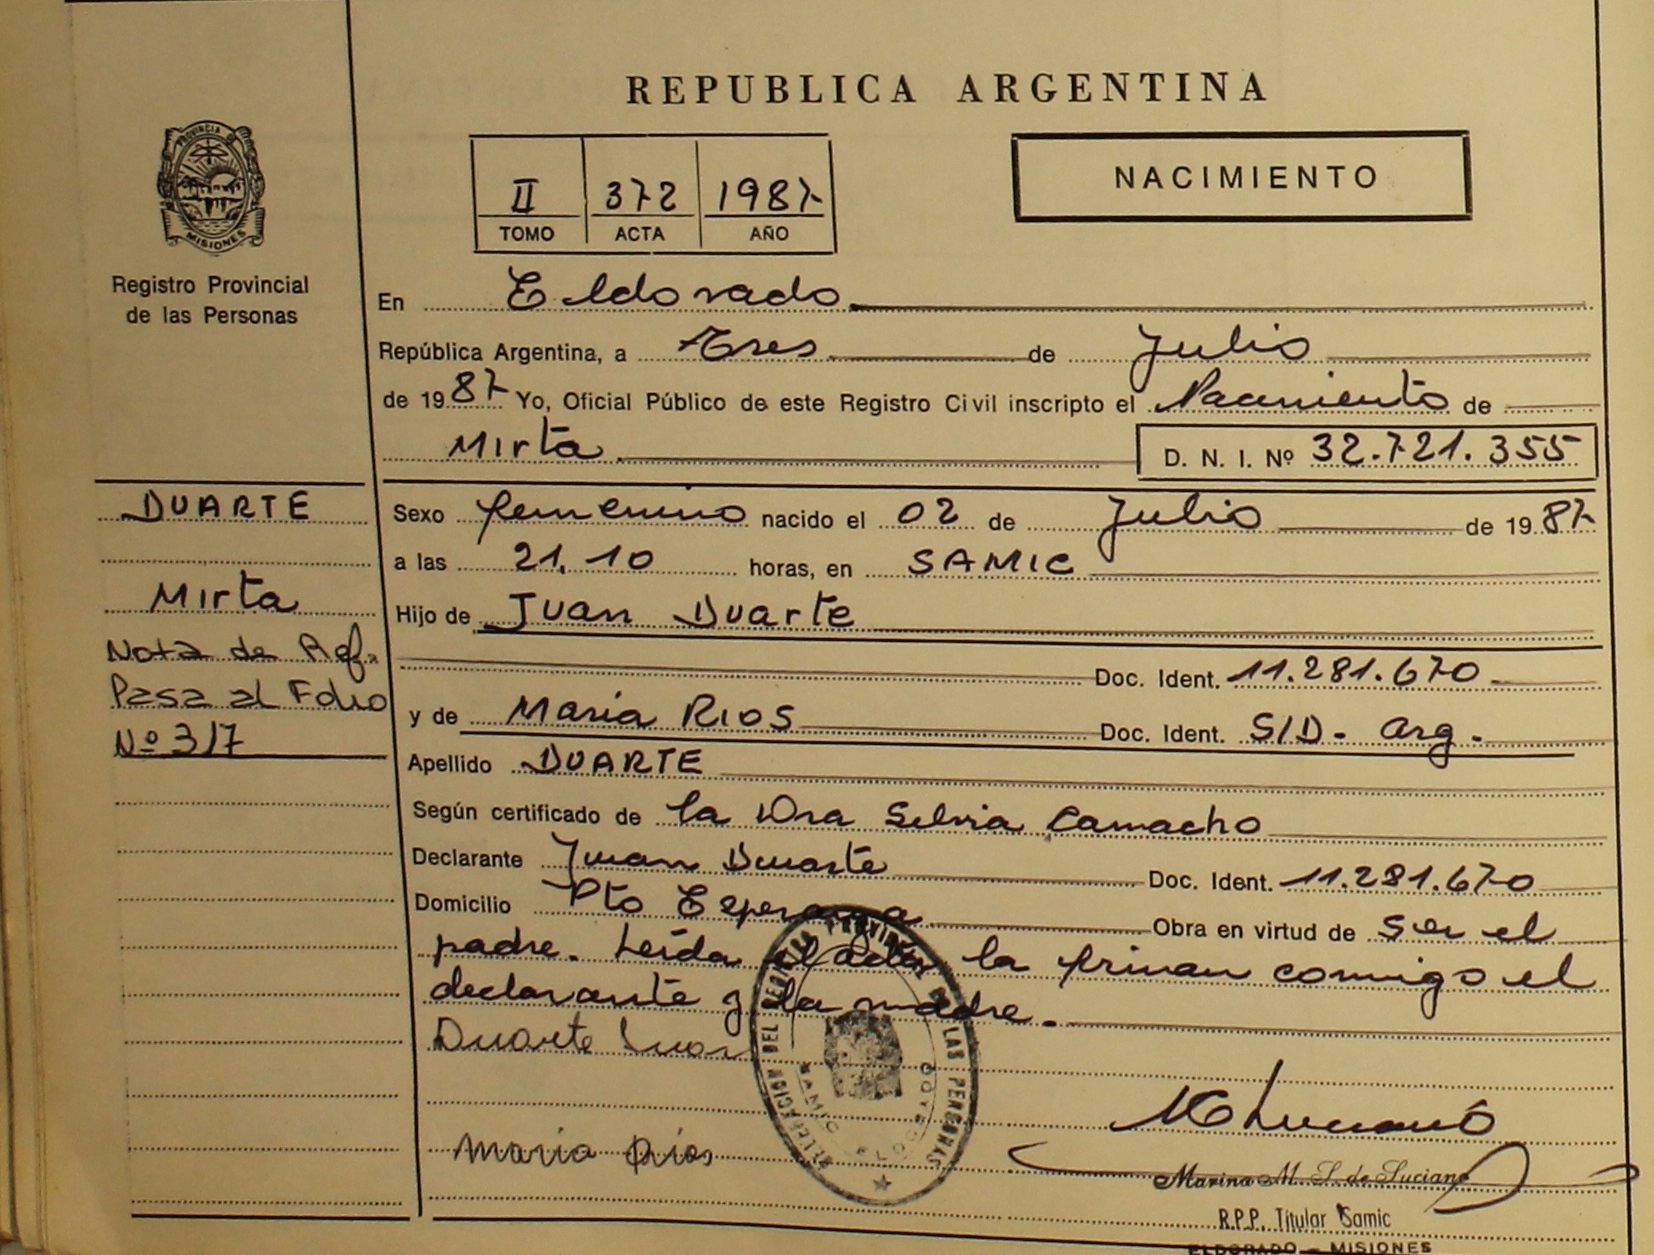 REPUBLICA ARGENTINA
PROVINCIA DE
MISIONES
Registro Provincial
de las Personas
II 372 1987
TOMO ACTA AÑO
NACIMIENTO
En Eldorado
República Argentina, a Tres de Julio
de 1987 Yo, Oficial Público de este Registro Civil inscripto el Nacimiento de
Mirta D. N. I. Nº 32.721.355
DUARTE
Mirta
Nota de Ref.
Pasa al Folio
Nº 317
Sexo femenino nacido el 02 de Julio de 1987
a las 21.10 horas, en SAMIC
Hijo de Juan Duarte
Doc. Ident. 11.281.670
y de Maria RIOS Doc. Ident. S/D. Arg.
Apellido DUARTE
Según certificado de la Dra Silvia Camacho
Declarante Juan Duarte Doc. Ident. 11.281.670
Domicilio Pto Esperanza Obra en virtud de ser el
padre. Leída el acta, la firman conmigo el
declarante y la madre.
Duarte Juan
DELEGACION DEL REGISTRO PROVINCIAL DE LAS PERSONAS
SAMIC ELDORADO
maria Rios
MLuciano
Marina M. S. de Luciano
R.P.P. Titular Samic
ELDORADO - MISIONES